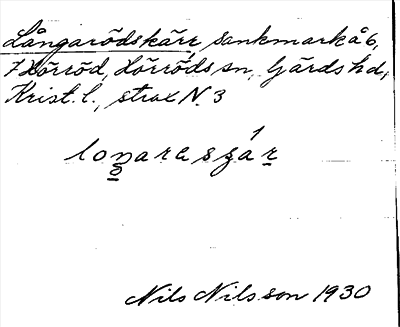 Långarödskärr, sankmark å 6,
7 Hörröd, Hörröds sn, Gärds hd,
Krist. l., strax N. 3
Nils Nilsson 1930